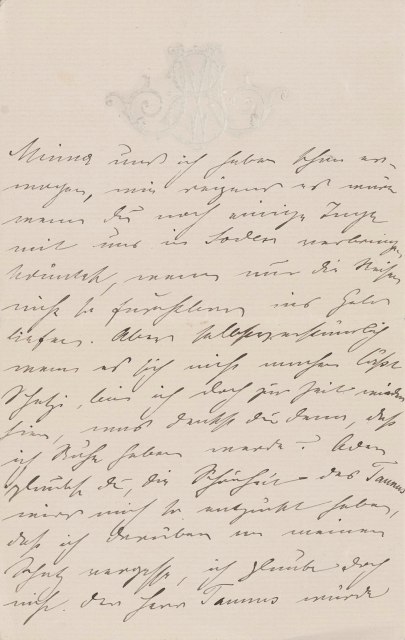 Minna und ich haben schon er-
wogen, wie reizend es wäre
wenn du noch einige Tage
mit uns in Soden verbringen
könntest, wenn nur die Reisen
nicht so furchtbar ins Geld
liefen. Aber selbstverständlich
wenn es sich nicht machen läßt
Schatz, bin ich doch zur Zeit wieder
hier, was denkst du denn, daß
ich Ruhe haben werde? Oder
glaubst du die Schönheit des Taunus
wird mich so entzückt haben,
daß ich darüber an meinen
Schatz vergesse, ich glaube doch
nicht. Der Herr Taunus würde